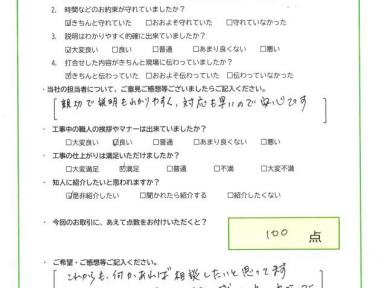 2. 時間などのお約束が守れていましたか?
☑きちんと守れていた □おおよそ守れていた □守れていなかった
3. 説明はわかりやすく的確に出来ていましたか?
☑大変良い □良い □普通 □あまり良くない □悪い
4. 打合せした内容がきちんと現場に伝わっていましたか?
☑きちんと伝わっていた □おおよそ伝わっていた □伝わっていなかった
・当社の担当者について、ご意見ご感想等ございましたらご記入ください。
親切で説明もわかりやすく、対応も早いので安心です
・工事中の職人の挨拶やマナーは出来ていましたか?
□大変良い ☑良い □普通 □あまり良くない □悪い
・工事の仕上がりは満足いただけましたか?
□大変満足 ☑満足 □普通 □不満 □大変不満
・知人に紹介したいと思われますか?
☑是非紹介したい □聞かれたら紹介する □紹介したくない
・今回のお取引に、あえて点数をお付けいただくと?
100 点
・ご希望・ご感想等ご記入ください。
これからも、何かあれば相談したいと思ってます